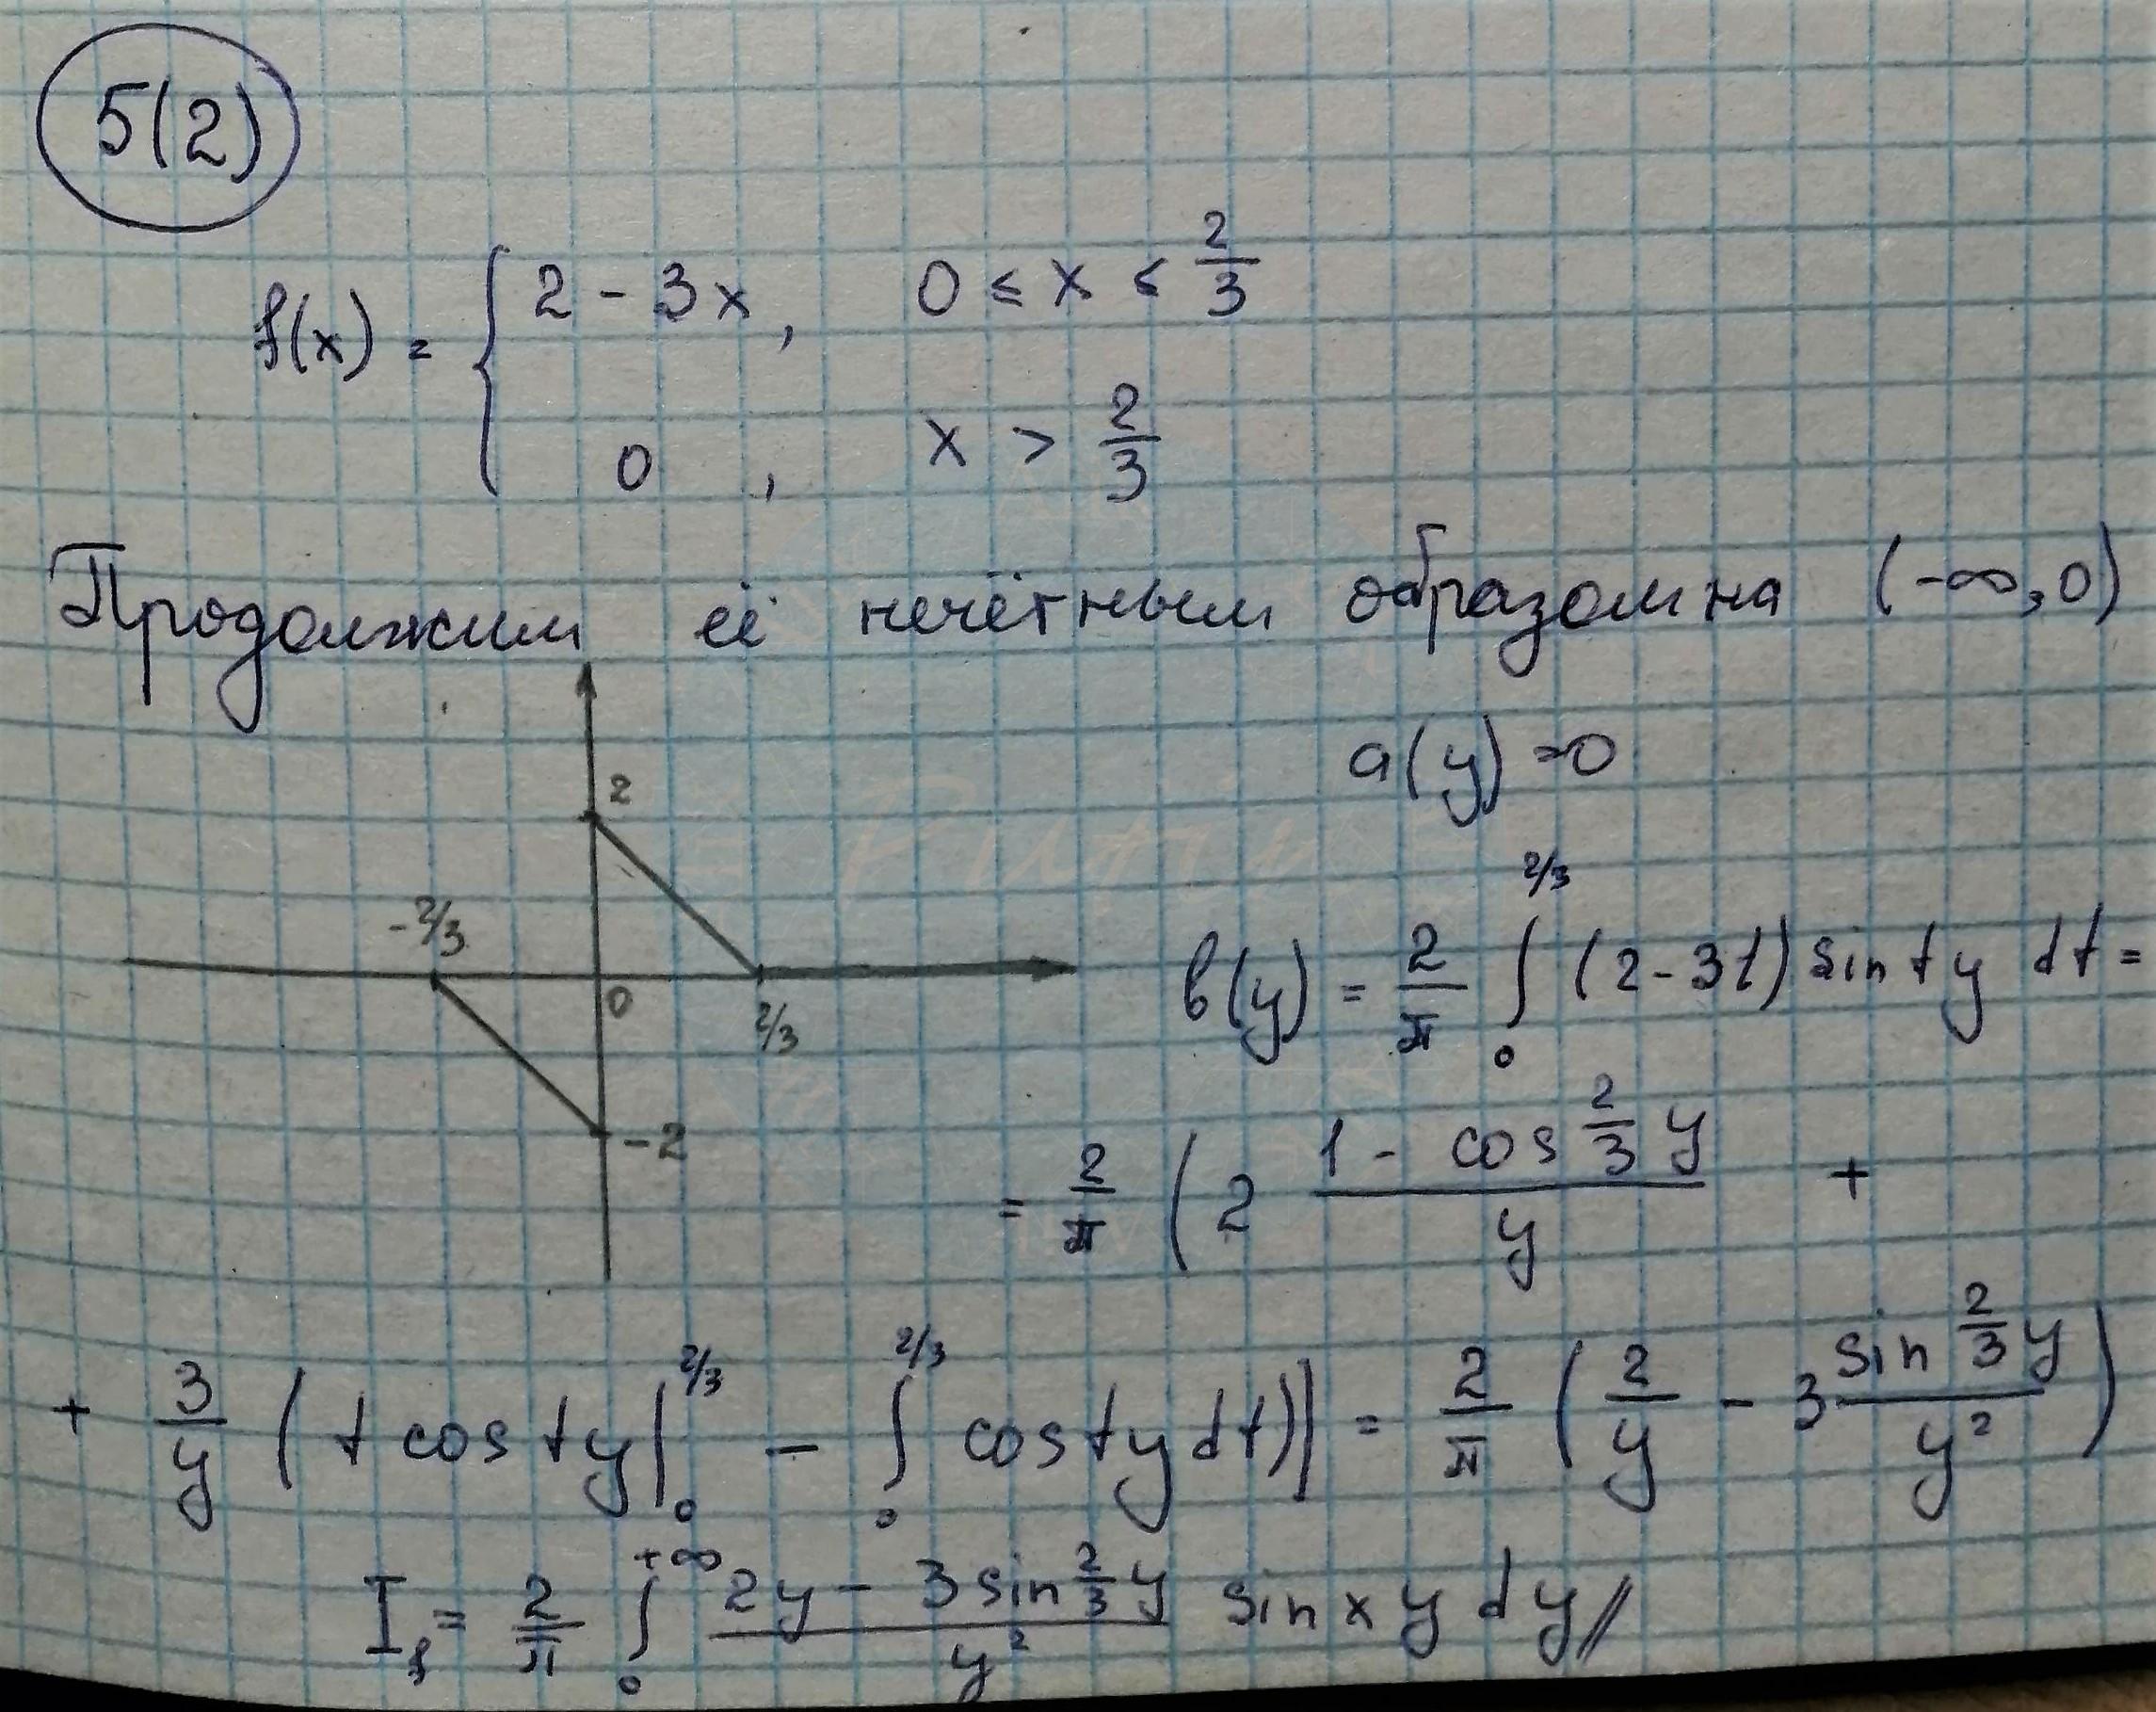 5(2)
f(x) = { 2 - 3x, 0 ≤ x ≤ 2/3
0, x > 2/3
Продолжим её нечётным образом на (-∞, 0)
a(y) = 0
2
-2/3
0
2/3
-2
b(y) = 2/π ∫₀^{2/3} (2-3t) sin ty dt =
= 2/π ( 2 (1 - cos 2/3 y)/y +
+ 3/y ( t cos ty |₀^{2/3} - ∫₀^{2/3} cos ty dt)) = 2/π ( 2/y - 3 (sin 2/3 y)/y² )
I_f = 2/π ∫₀^{+∞} (2y - 3 sin 2/3 y)/y² sin xy dy //